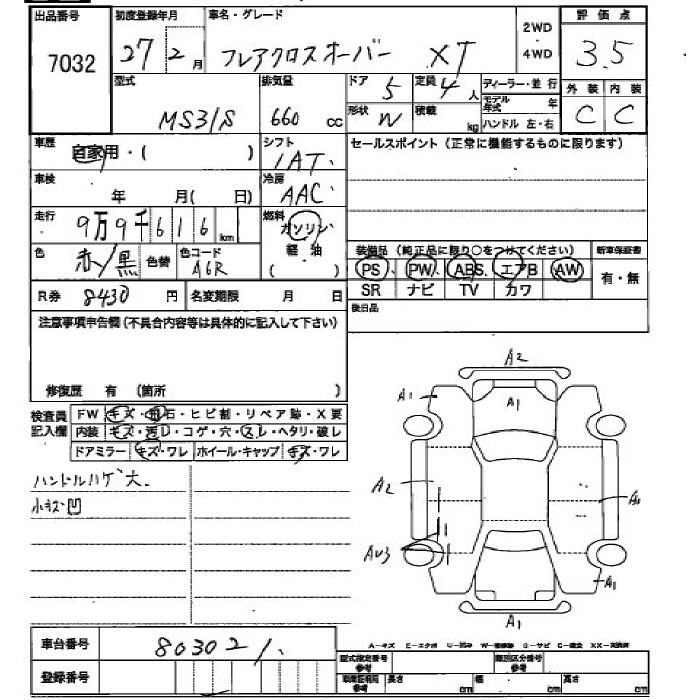 出品番号 7032
初度登録年月 27 2月
車名・グレード フレアクロスオーバー XT
2WD
4WD
評価点 3.5
外装 C 内装 C
型式 MS31S
排気量 660 cc
ドア 5 定員 4人
形状 W 積載 kg
ディーラー・並行
モデル年式 年
ハンドル 左・右
車歴 自家用・( )
シフト IAT
車検 年 月( 日)
冷房 AAC
走行 9万9千616 km
燃料 ガソリン 軽油 ( )
色 赤/黒 色替 色コード A6R
R券 8430円 名変期限 月 日
セールスポイント(正常に機能するものに限ります)
装備品(純正品に限り○をつけてください)
新車保証書 有・無
PS PW ABS エアB AW
SR ナビ TV カワ
後日品
注意事項申告欄(不具合内容等は具体的に記入して下さい)
修復歴 有 (箇所 )
検査員記入欄
FW キズ・飛石・ヒビ割・リペア跡・X要
内装 キズ・汚レ・コゲ・穴・スレ・ヘタリ・破レ
ドアミラー キズ・ワレ ホイール・キャップ キズ・ワレ
ハンドルハゲ大.
小キズ凹
A2
A1
A1
A2
AU3
A1
A1
車台番号 803021
登録番号
A-キズ E-エクボ U-凹み S-サビ C-腐食 XX-交換済
型式指定番号 参考
類別区分番号 参考
参考 長さ cm 幅 cm 高さ cm